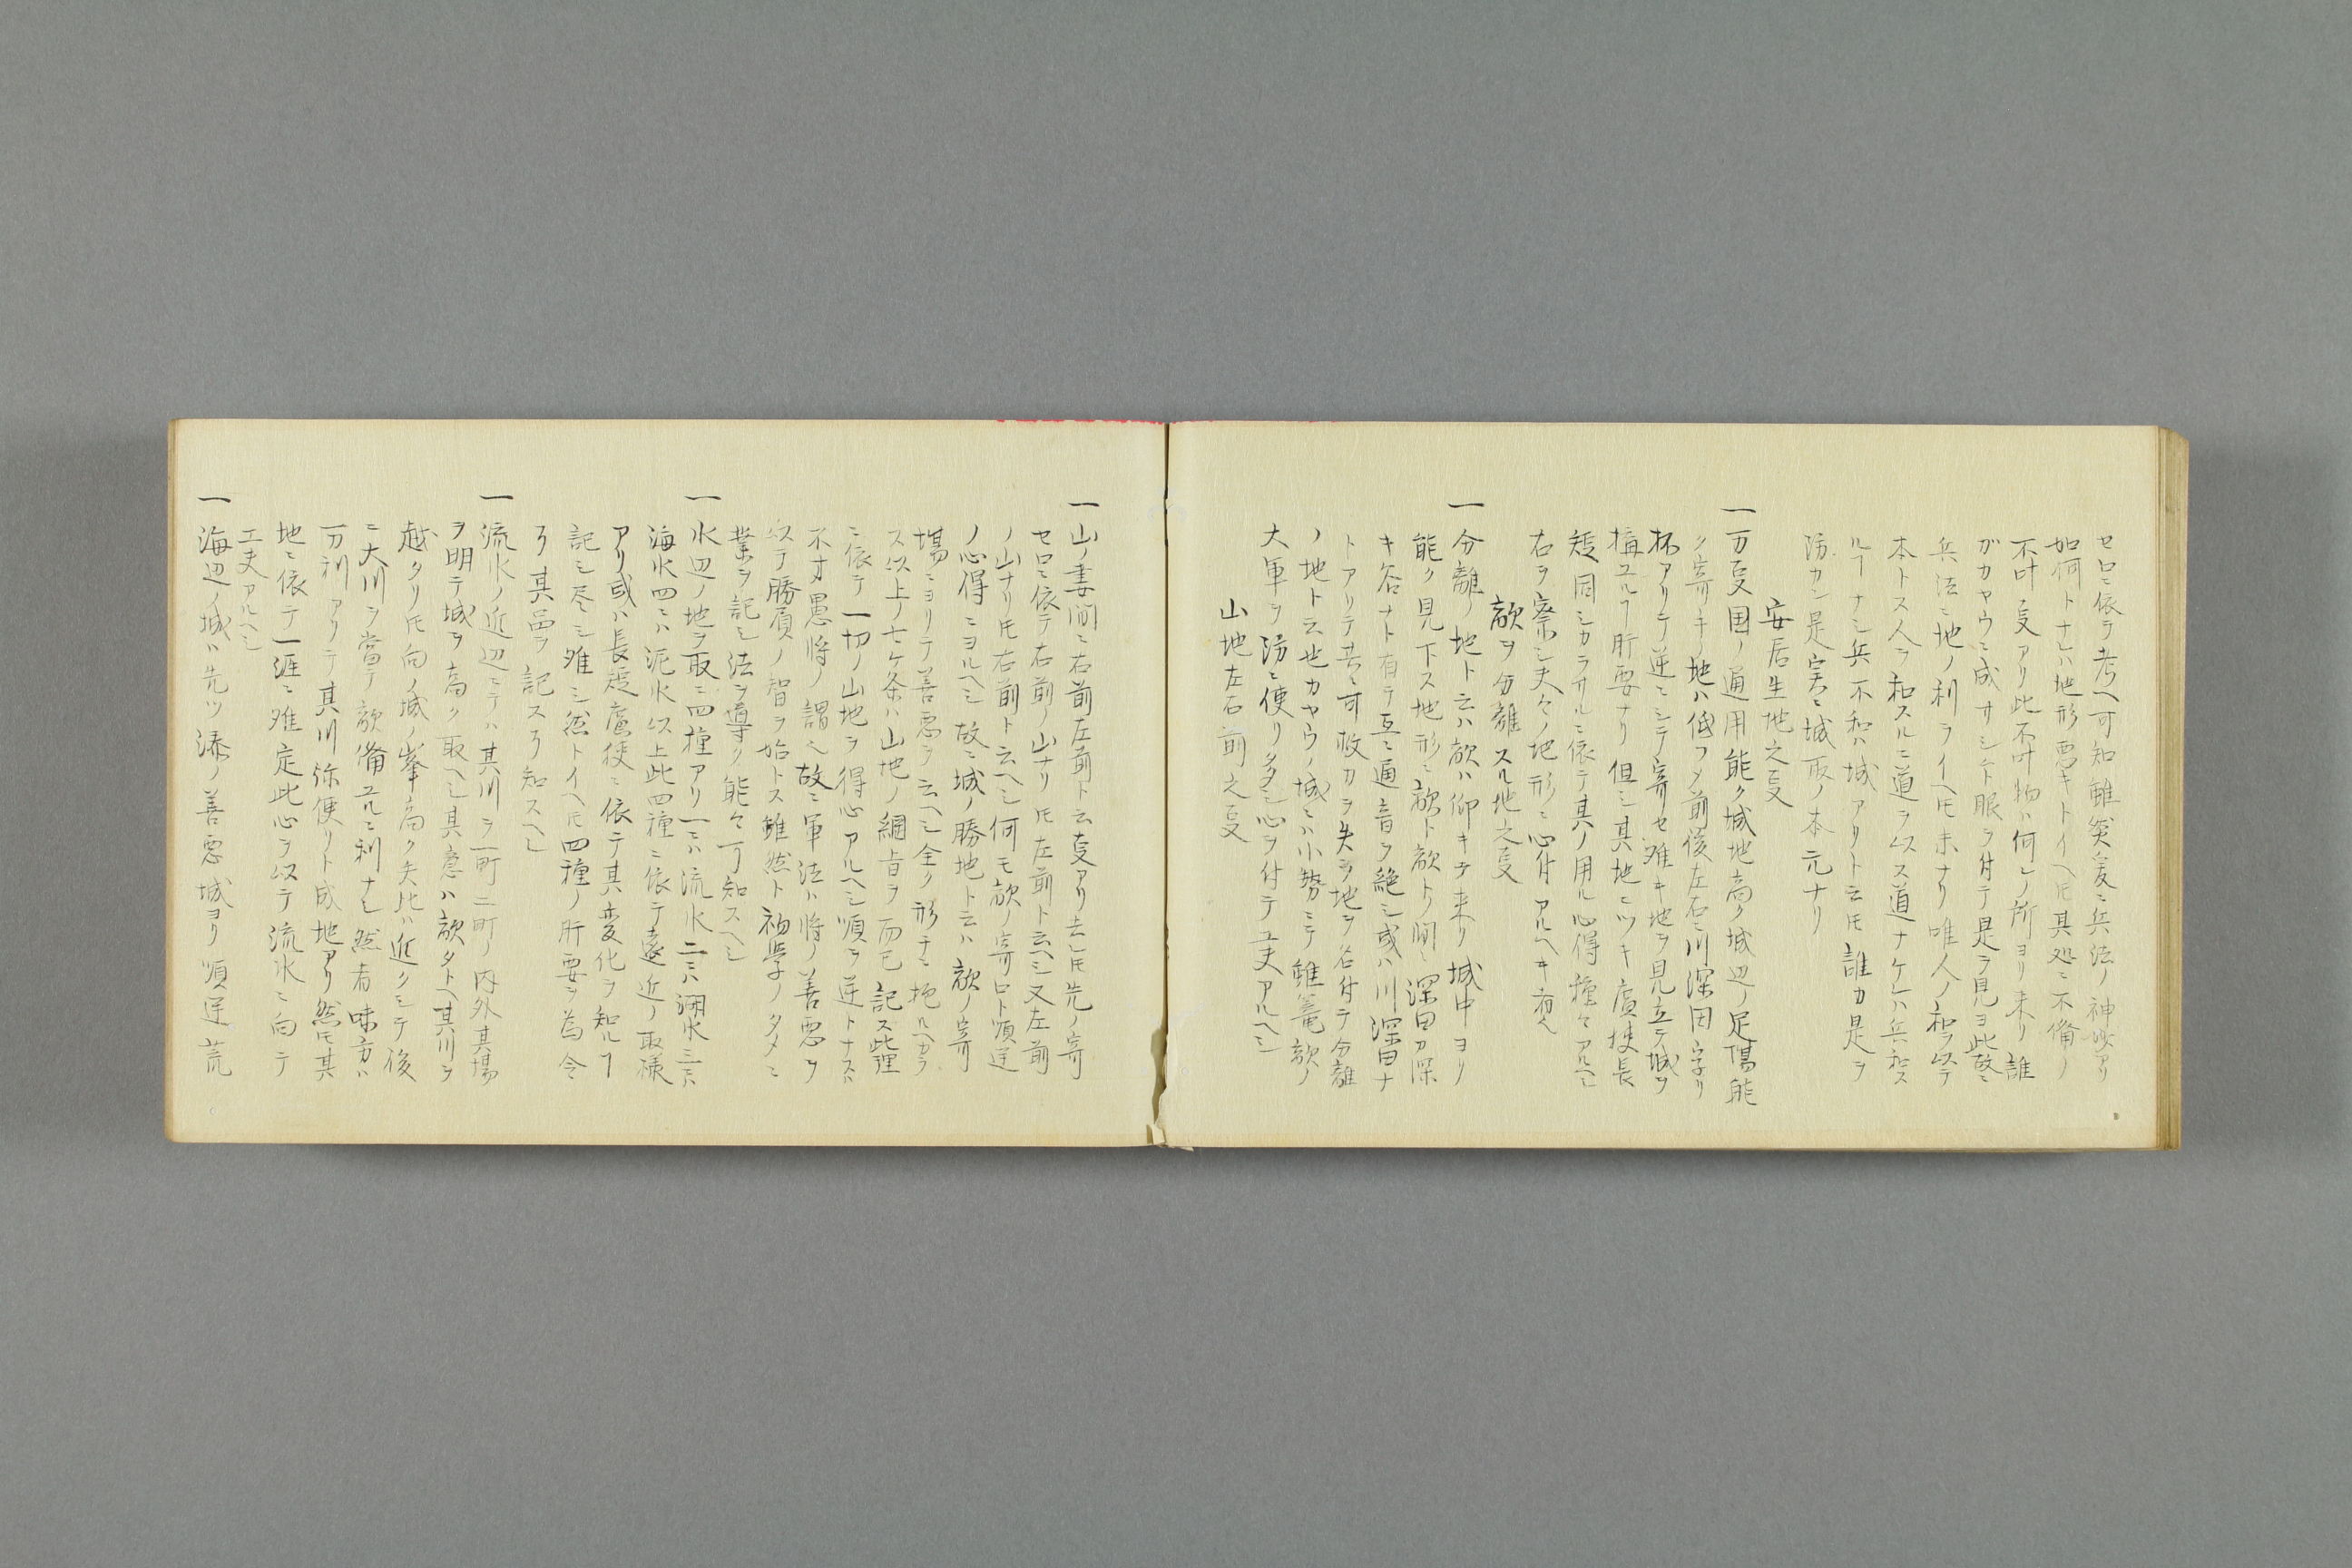 セロニ依テ考ヘ可知雖然爰ニ兵法ノ神妙アリ
如何トナレハ地形悪キトイヘ𪜈其処ニ不備ノ
不叶㕝アリ此不叶物ハ何レノ所ヨリ来リ誰
ガカヤウニ成サシト眼ヲ付テ是ヲ見ヨ此故ニ
兵法ニ地ノ利ヲイヘ𪜈末ナリ唯人ノ和ヲ以テ
本トス人ヲ和スルニ道ヲ以ス道ナケレハ兵和ス
ルヿナシ兵不和ハ城アリト云𪜈誰カ是ヲ
防カン是実ニ城取ノ本元ナリ
安居生地之㕝
一万㕝国ノ通用能ク城地高ク城辺ノ足場能
ク寄リキノ地ハ低フメ前後左右ニ川深田ナリ
杯アリテ逆ニシテ寄セ難キ地ヲ見立テ城ヲ
搆ユルヿ肝要ナリ但シ其地ニツキ廣狭長
短同シカラサルニ依テ其ノ用ル心得種々アルヘシ
右ヲ察シ夫々ノ地形ニ心付アルヘキ者也
敵ヲ分離スル地之㕝
一分離ノ地ト云ハ敵ハ仰キテ来リ城中ヨリ
能ク見下ス地形ニ敵ト敵トノ間ニ深田カ深
キ谷ナト有テ互ニ通音ヲ絶シ或ハ川深田ナ
トアリテ共ニ可救カヲ失ヲ地ヲ名付テ分離
ノ地ト云也カヤウノ城ニハ小勢ニテ雖篭敵ノ
大軍ヲ防ニ便リ多シ心ヲ付テ工夫アルヘシ
山地左右前之㕝
一山ノ妻間ニ右前左前ト云㕝アリ去𪜈先ノ寄
セロニ依テ右前ノ山ナリ𪜈左前ト云ヘシ又左前
ノ山ナリ𪜈右前ト云ヘシ何モ敵ノ寄ロト順逆
ノ心得ニヨルヘシ故ニ城ノ勝地ト云ハ敵ノ寄
場ニヨリテ善悪ヲ云ヘシ全ク形チニ抱ルヘカラ
ス以上ノ七ケ条ハ山地ノ綱旨ヲ而已記ス此理
ニ依テ一切ノ山地ヲ得心アルヘシ順ヲ逆トナスハ
不才愚将ノ謂ヘ故ニ軍法ハ将ノ善悪ヲ
以テ勝負ノ智ヲ始トス雖然ト初学ノタメニ
業ヲ記シ法ヲ導ク能々可知スヘシ
一水辺ノ地ヲ取ニ四種アリ一ニハ流水二ニハ湖水三ニハ
海水四ニハ泥水以上此四種ニ依テ遠近ノ取様
アリ或ハ長短廣狭ニ依テ其変化ヲ知ルヿ
記シ尽シ難シ然トイヘ𪜈四種ノ肝要ヲ為令
ク其品ヲ記スク知スヘシ
一流水ノ近辺ニテハ其川ヲ一町二町ノ内外其場
ヲ明テ城ヲ高ク取ヘシ其意ハ敵タトヘ其川ヲ
越タリ𪜈向ノ城ノ峯高ク矢比ハ近クシテ後
ニ大川ヲ當テ敵備ユルニ利ナシ然者味方ハ
万利アリテ其川弥便リト成地アリ然𪜈其
地ニ依テ一涯ニ難定此心ヲ以テ流水ニ向テ
工夫アルヘシ
一海辺ノ城ハ先ツ湊ノ善悪城ヨリ順逆荒